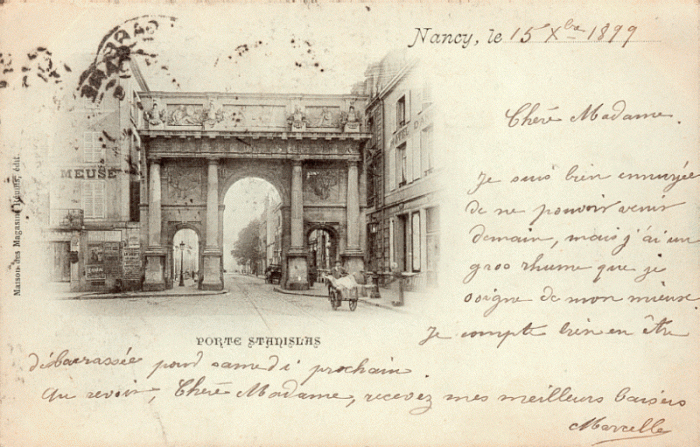 Nancy, le 15 Xbre 1899
Chère Madame.
Je suis bien ennuyée
de ne pouvoir venir
demain, mais j'ai un
gros rhume que je
soigne de mon mieux.
Je compte bien en être
débarrassée pour samedi prochain
Au revoir, Chère Madame, recevez mes meilleurs baisers
Marcelle
PORTE STANISLAS
Maison des Magasins Réunis, édit.
MEUSE
HOTEL